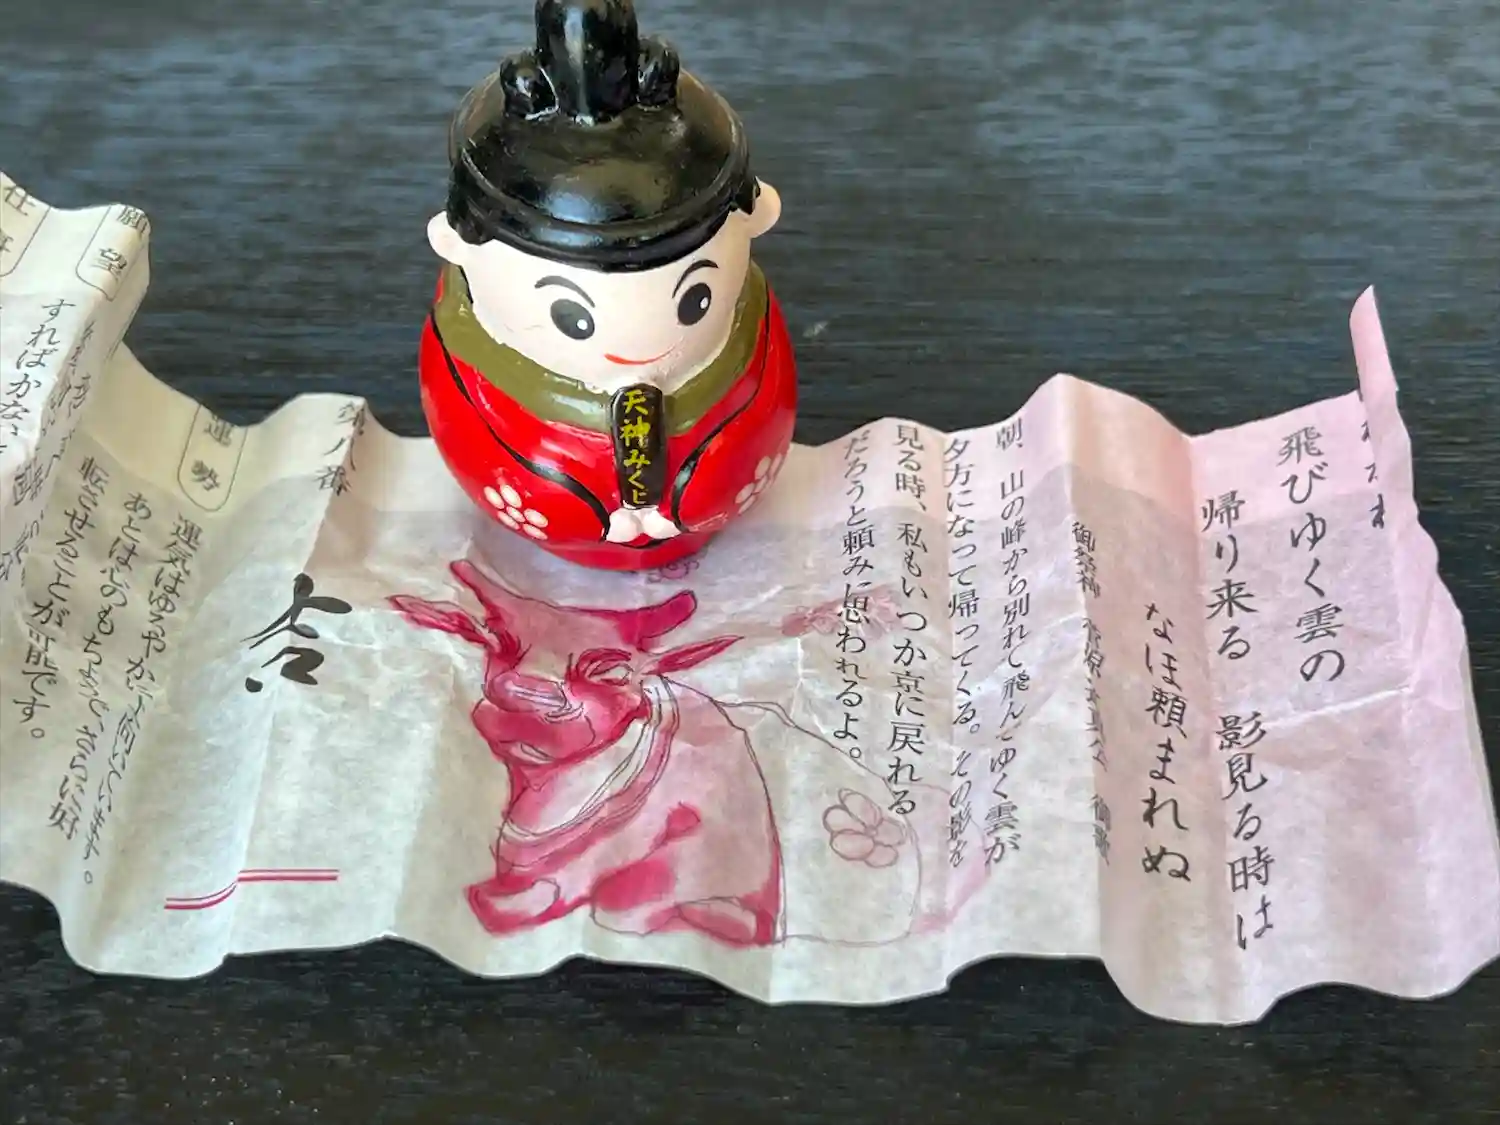 天神みくじ
飛びゆく雲の
帰り来る 影見る時は
なほ頼まれぬ
御祭神 菅原道真公 御歌
朝、山の峰から別れて飛んでゆく雲が
夕方になって帰ってくる。その影を
見る時、私もいつか京に戻れる
だろうと頼みに思われるよ。
第八番
吉
運勢
運気はゆるやかに上向いています。
あとは心のもちようで、さらに好
転させることが可能です。
願望
すればかない